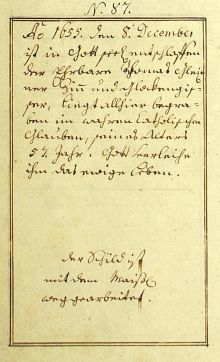 N: 87.
Aō 1655. den 8. December
ist in Gott seel: entschlaffen
der Ehrbare Thomas
ner Zin und Glockengis-
ser, liegt allhier begra-
ben im wahren Catholischen
Glauben, seines Alters
57 Jahr. Gott verleihe
ihm das ewige Leben.
der Schild ist
mit dem Maisl
weggearbeitet.